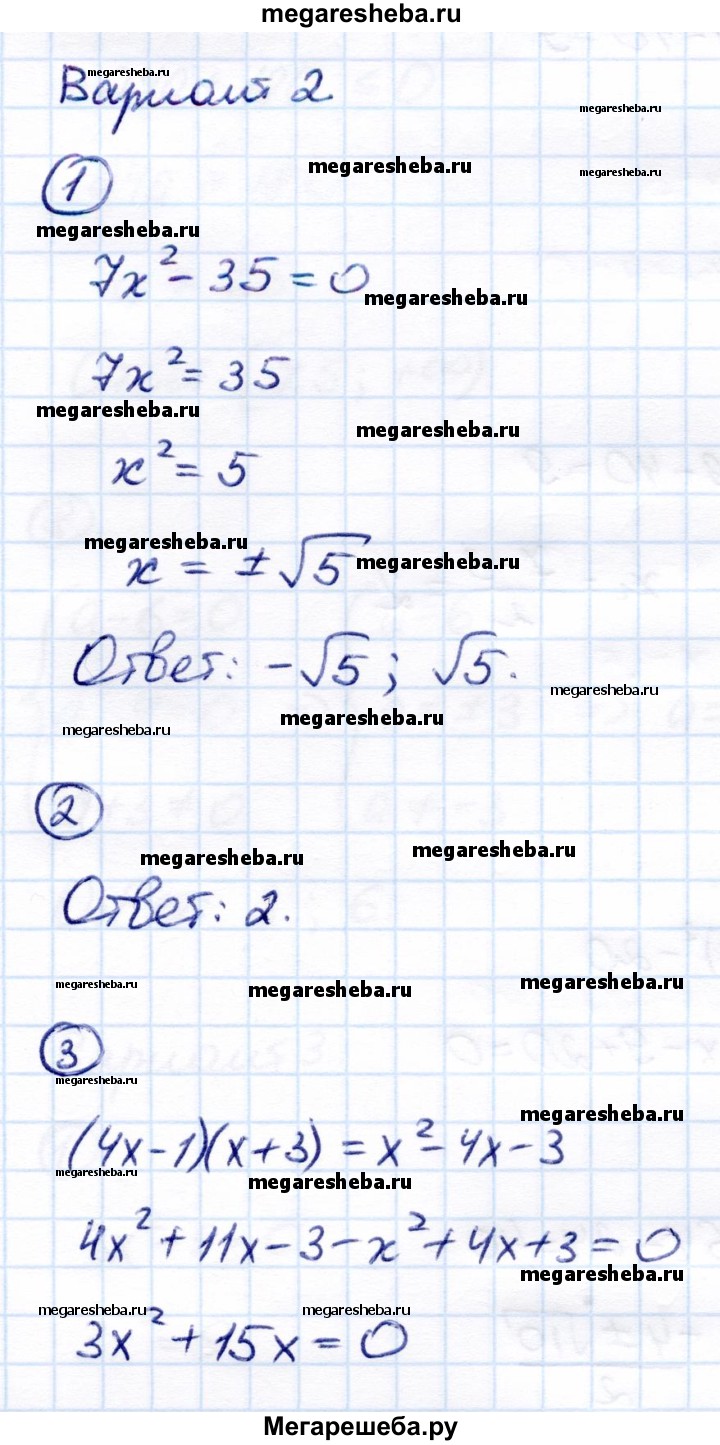 megaresheba.ru
megaresheba.ru
Вариант 2
megaresheba.ru
megaresheba.ru
1
megaresheba.ru
7x² - 35 = 0
megaresheba.ru
7x² = 35
megaresheba.ru
megaresheba.ru
x² = 5
megaresheba.ru
x = ±√5
megaresheba.ru
Ответ: -√5; √5.
megaresheba.ru
megaresheba.ru
megaresheba.ru
2
megaresheba.ru
megaresheba.ru
Ответ: 2.
megaresheba.ru
megaresheba.ru
megaresheba.ru
3
megaresheba.ru
megaresheba.ru
(4x-1)(x+3) = x² - 4x - 3
megaresheba.ru
megaresheba.ru
4x² + 11x - 3 - x² + 4x + 3 = 0
megaresheba.ru
megaresheba.ru
megaresheba.ru
3x² + 15x = 0
Мегарешеба.ру